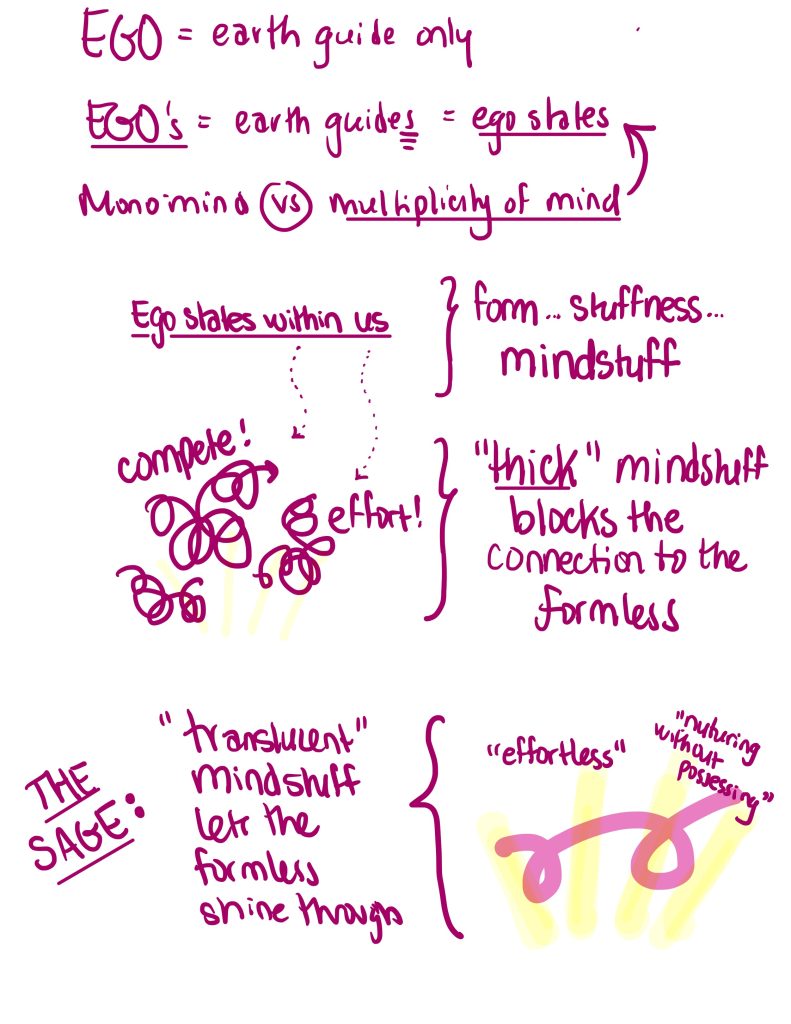 EGO = earth guide only
EGO's = earth guides = ego states
Monomind vs multiplicity of mind
Ego states within us
form... stuffness...
mindstuff
compete!
effort!
"thick" mindstuff
blocks the
connection to the
formless
THE
SAGE:
"translucent"
mindstuff
lets the
formless
shine through
"effortless"
"nuturing
without
possessing"